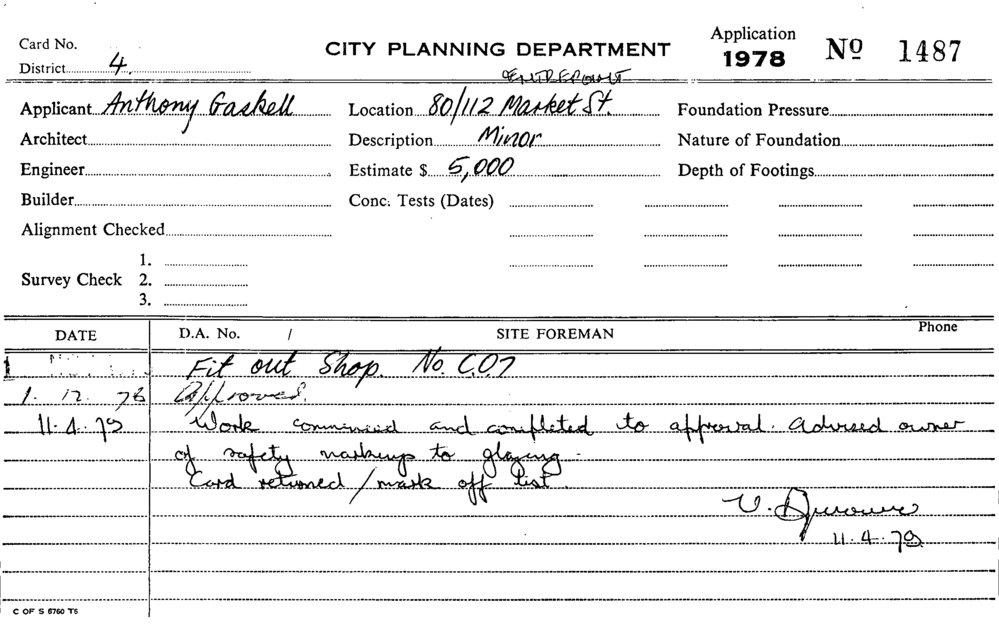 Card No.
District 4.
CITY PLANNING DEPARTMENT
Application
1978 Nº 1487
Applicant Anthony Gaskell
Location 80/112 Market St.
Foundation Pressure
Architect
Description Minor
Nature of Foundation
Engineer
Estimate $ 5,000
Depth of Footings
Builder
Conc. Tests (Dates)
Alignment Checked
Survey Check 1.
2.
3.
DATE D.A. No. / SITE FOREMAN Phone
Fit out Shop. No. C.07
1. 12. 78 Approved.
11. 4. 79 Work commenced and completed to approval. Advised owner
of safety markings to glazing.
Card returned / mark off list.
11. 4. 79
C OF S 6760 T5